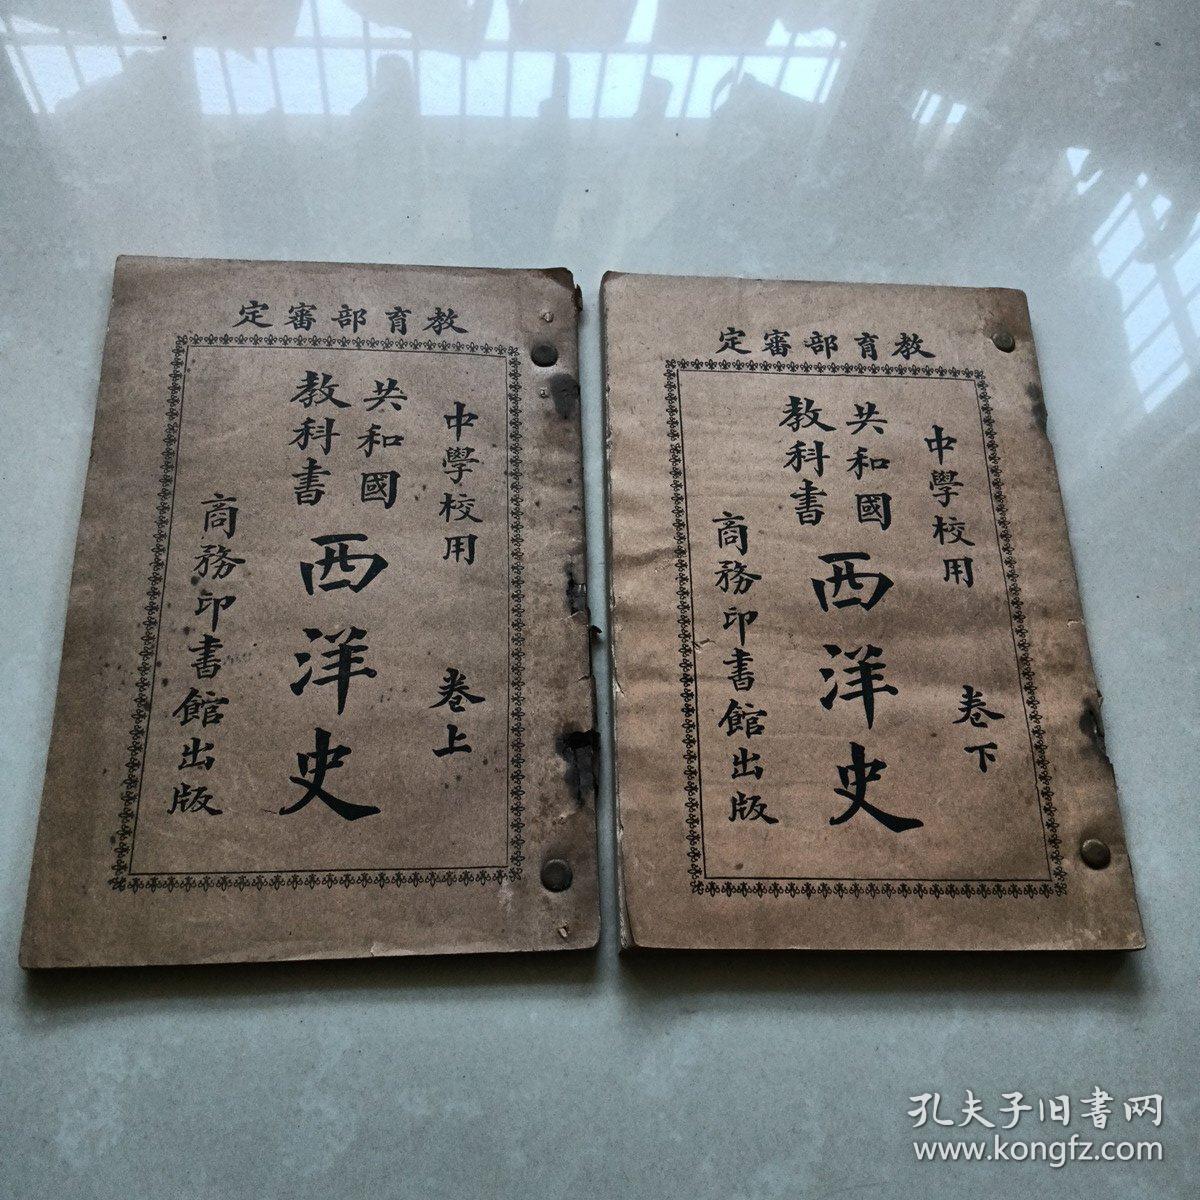 教育部審定
中學校用 卷上
共和國
教科書
西洋史
商務印書館出版
教育部審定
中學校用 卷下
共和國
教科書
西洋史
商務印書館出版
孔夫子旧書网
www.kongfz.com